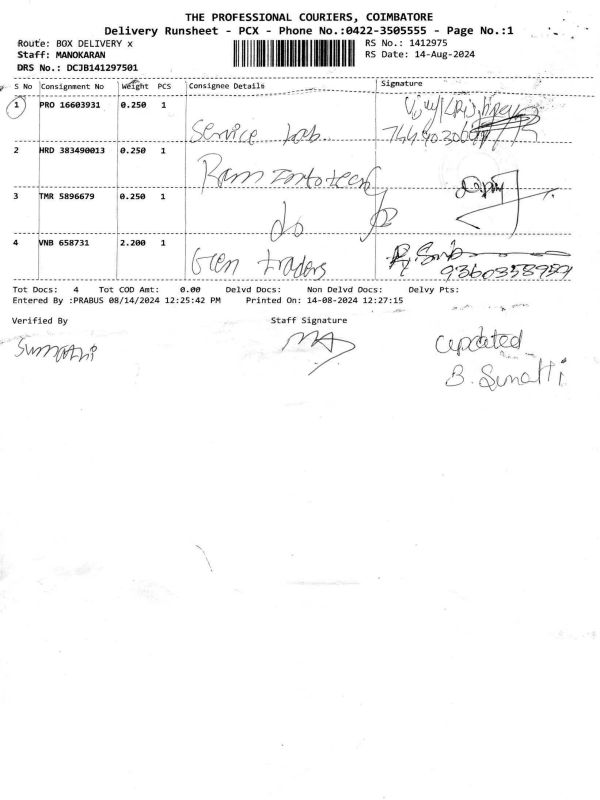 THE PROFESSIONAL COURIERS, COIMBATORE
Delivery Runsheet - PCX - Phone No.:0422-3505555 - Page No.:1
Route: BOX DELIVERY x
RS No.: 1412975
Staff: MANOKARAN
RS Date: 14-Aug-2024
DRS No.: DCJB141297501
S No Consignment No Weight PCS Consignee Details Signature
1 PRO 16603931 0.250 1
Service lab
2 HRD 383490013 0.250 1
Ram Infotech
3 TMR 5896679 0.250 1
do
4 VNB 658731 2.200 1
Gen traders
9360358959
Tot Docs: 4 Tot COD Amt: 0.00 Delvd Docs: Non Delvd Docs: Delvy Pts:
Entered By :PRABUS 08/14/2024 12:25:42 PM Printed On: 14-08-2024 12:27:15
Verified By Staff Signature
Sumathi
updated
B.